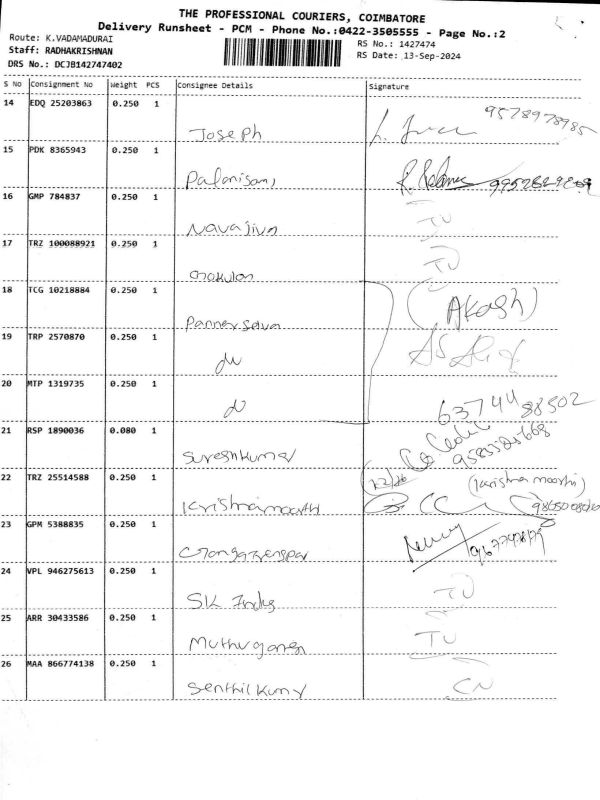 THE PROFESSIONAL COURIERS, COIMBATORE
Delivery Runsheet - PCM - Phone No.:0422-3505555 - Page No.:2
Route: K.VADAMADURAI
RS No.: 1427474
Staff: RADHAKRISHNAN
RS Date: 13-Sep-2024
DRS No.: DCJB142747402
S No Consignment No Weight PCS Consignee Details Signature
14 EDQ 25203863 0.250 1 Joseph 9578978985
15 PDK 8365943 0.250 1 Palanisami
16 GMP 784837 0.250 1 Navajivn TU
17 TRZ 100088921 0.250 1 Gokulan TU
18 TCG 10218884 0.250 1 Pannerselva (Akash)
19 TRP 2570870 0.250 1
20 MTP 1319735 0.250 1 63744 88502
21 RSP 1890036 0.080 1 Sureshkumar
22 TRZ 25514588 0.250 1 Krishnamoorthi (Krishna moorthi)
23 GPM 5388835 0.250 1
24 VPL 946275613 0.250 1 SK Indus TU
25 ARR 30433586 0.250 1 Muthuganesh TU
26 MAA 866774138 0.250 1 Senthilkumar CN